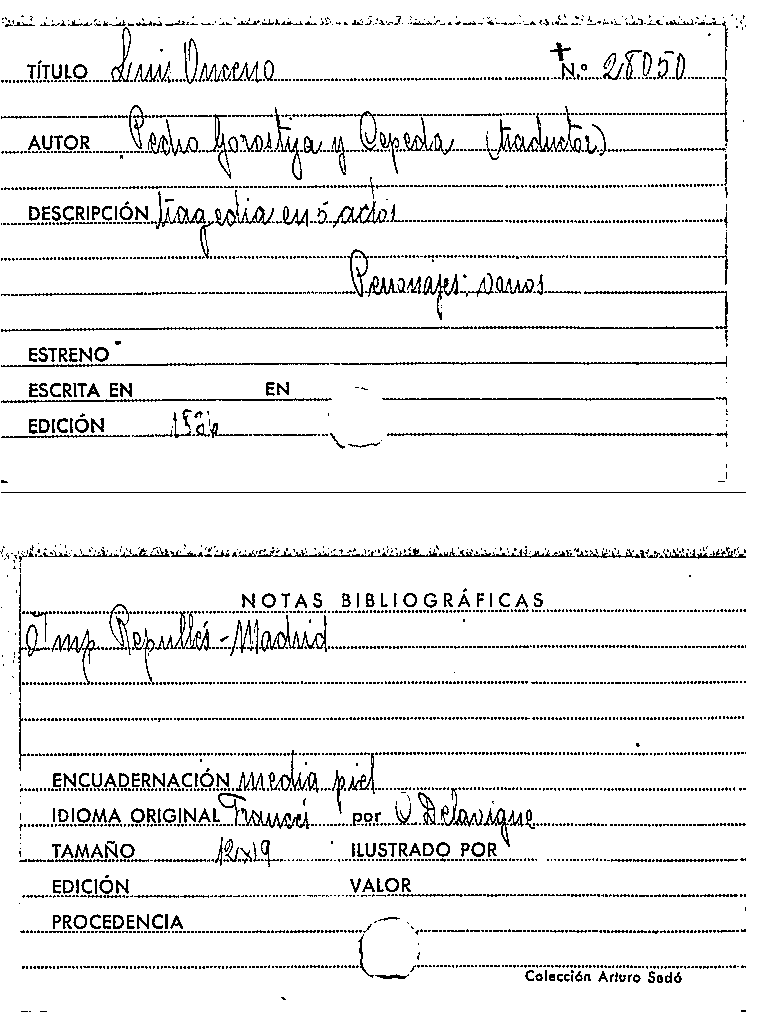 TÍTULO Luis Onceno N.º 28050
AUTOR Pedro Gorostiza y Cepeda (traductor)
DESCRIPCIÓN tragedia en 5 actos
Personajes: varios
ESTRENO
ESCRITA EN EN
EDICIÓN
NOTAS BIBLIOGRÁFICAS
Imp Repullés - Madrid
ENCUADERNACIÓN media piel
IDIOMA ORIGINAL Francés por C Delavigne
TAMAÑO 12x19 ILUSTRADO POR
EDICIÓN VALOR
PROCEDENCIA
Colección Arturo Sedó